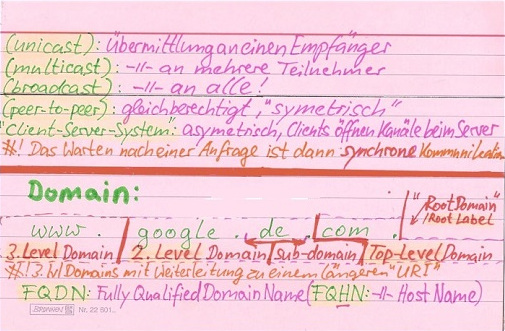 (unicast): Übermittlung an einen Empfänger
(multicast): -||- an mehrere Teilnehmer
(broadcast): -||- an alle!
(peer-to-peer): gleichberechtigt, "symetrisch"
"Client-Server-System": asymetrisch, Clients öffnen Kanäle beim Server
#! Das Warten nach einer Anfrage ist dann synchrone Kommunikation
Domain:
"Root Domain"
/Root Label
www. google . de . com .
3. Level Domain 2. Level Domain Sub-domain Top-Level Domain
Domains mit Weiterleitung zu einem längeren "URI"
FQDN: Fully Qualified Domain Name (FQHN: -||- Host Name)
BRUNNEN Nr. 22 801..